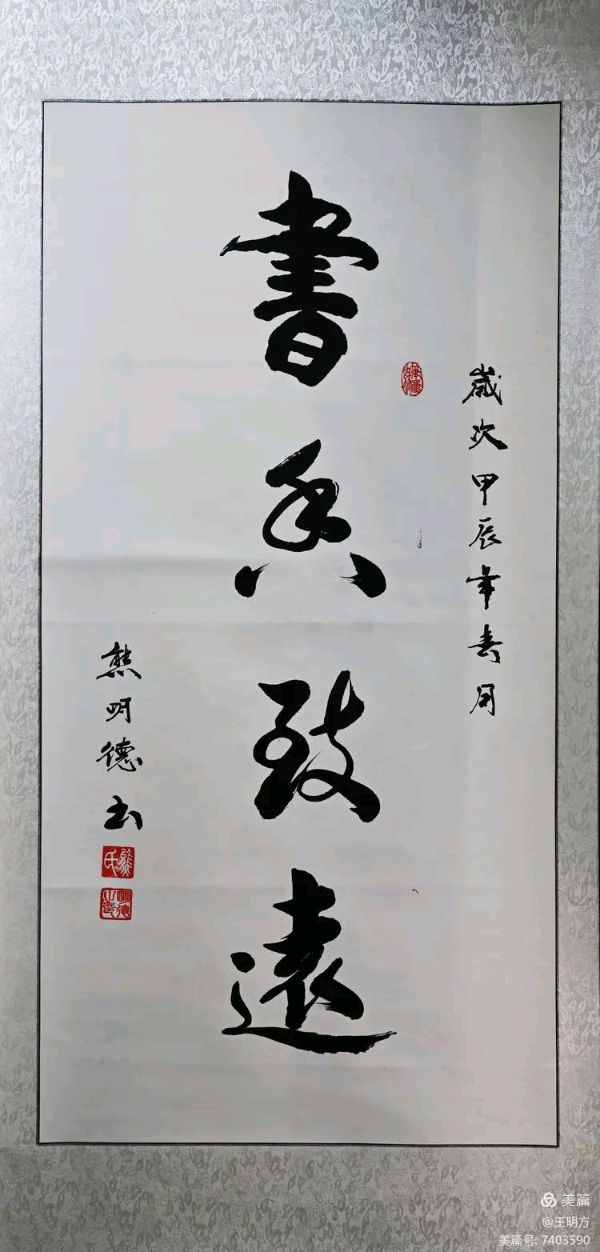 歲次甲辰年春月
書香致遠
熊明德书
熊氏
美篇
@王明方
美篇号: 7403590